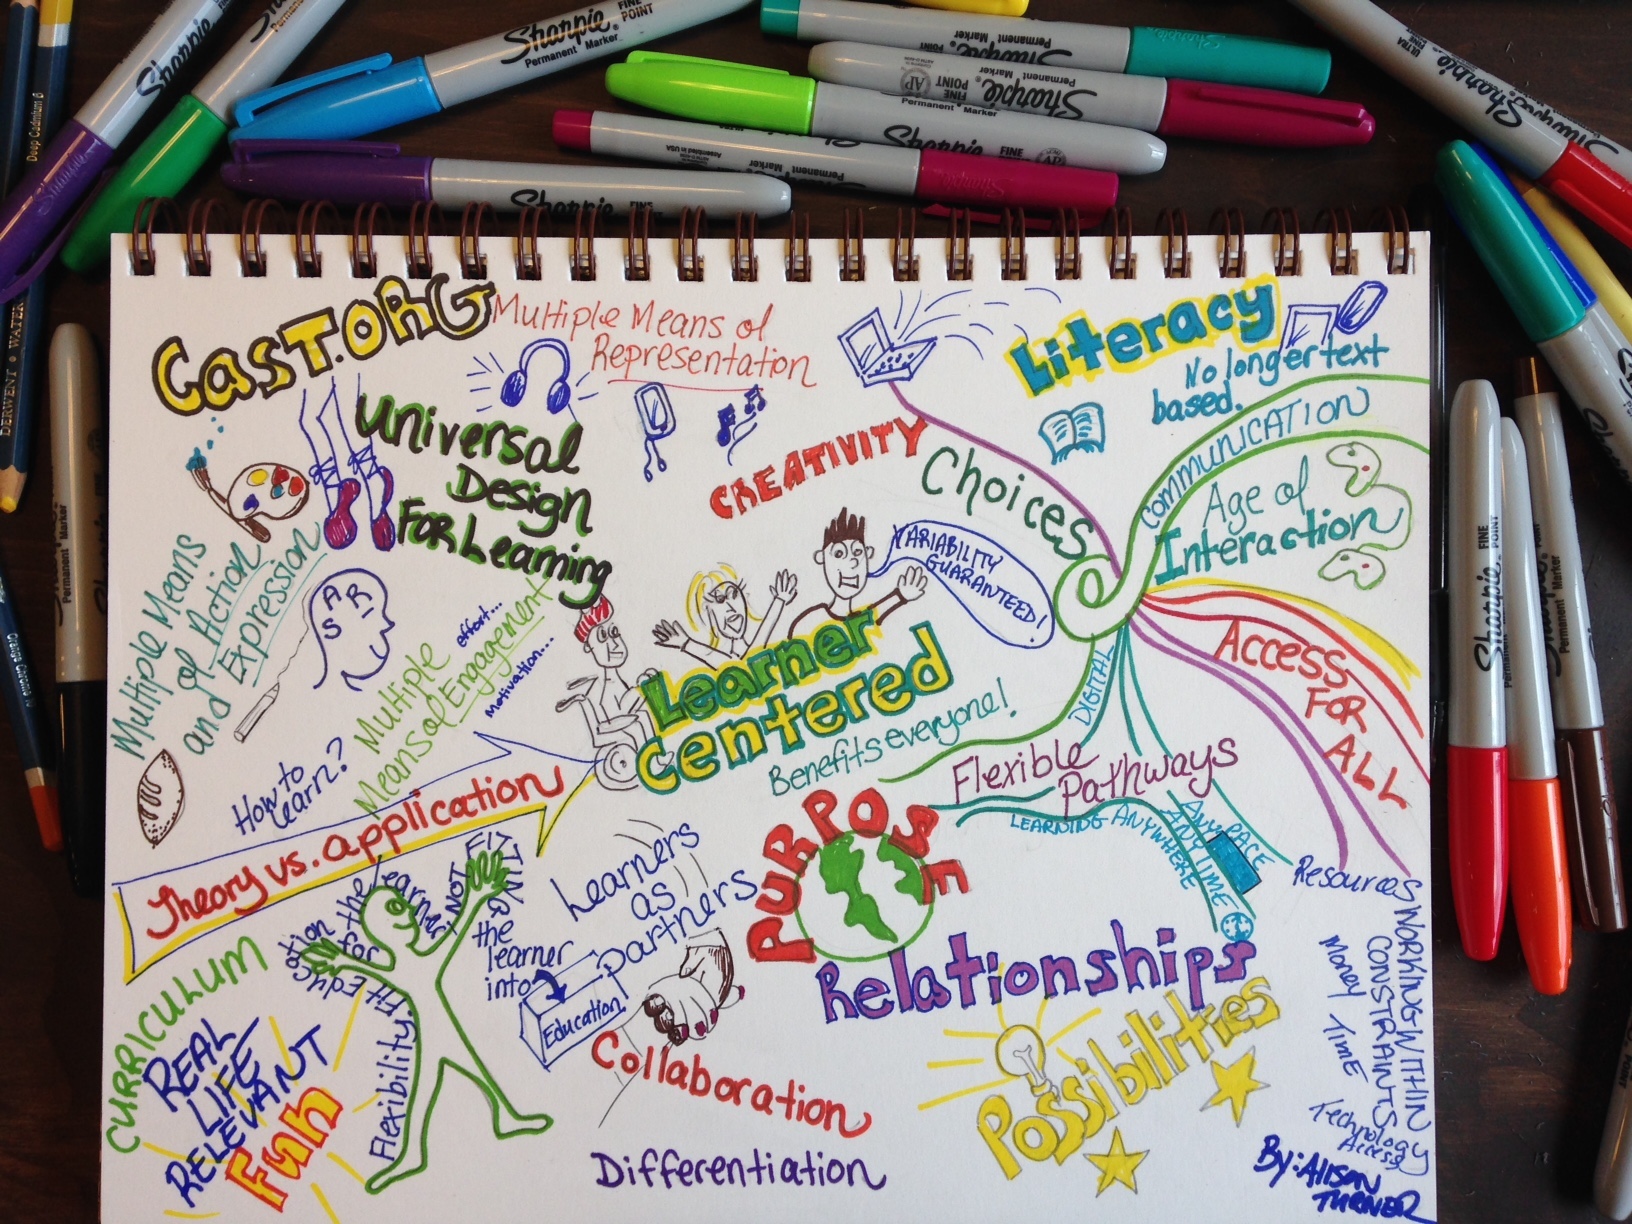 Sharpie
Permanent Marker
FINE POINT
Sharpie
Permanent Marker
Sharpie
FINE POINT
Permanent Marker
Sharpie
FINE
Sharpie
FINE POINT
Permanent Marker
AP
Sharpie
Permanent Marker
FINE
AP
Sharpie
Assembled in USA
Sharpie
Permanent Marker
ULTRA FINE
Deep Cadmium 6
DERWENT • WATER
CAST.ORG
Multiple Means of
Representation
Universal
Design
For Learning
Multiple Means
of Action
and Expression
ARS
Multiple
Means of Engagement
effort...
motivation...
How to
learn?
Theory vs. application
Literacy
No longer text
based.
CREATIVITY
Choices
COMMUNICATION
Age of
Interaction
VARIABILITY
GUARANTEED!
Learner
Centered
Benefits everyone!
ACCESS
FOR
ALL
DIGITAL
Flexible
Pathways
LEARNING ANYWHERE
ANYTIME
ANYPACE
Resources
WORKING WITHIN
CONSTRAINTS
Money Time
Technology
Access
PURPOSE
Relationships
Possibilities
Learners
as
partners
Collaboration
Differentiation
CURRICULUM
REAL
LIFE
RELEVANT
Fun
Flexibility.
Fit Education
for the learner,
NOT FITTING
the
learner
into
Education
By: Alison
TURNER
Sharpie
FINE POINT
Permanent Marker
Sharpie
FINE POINT
Permanent Marker